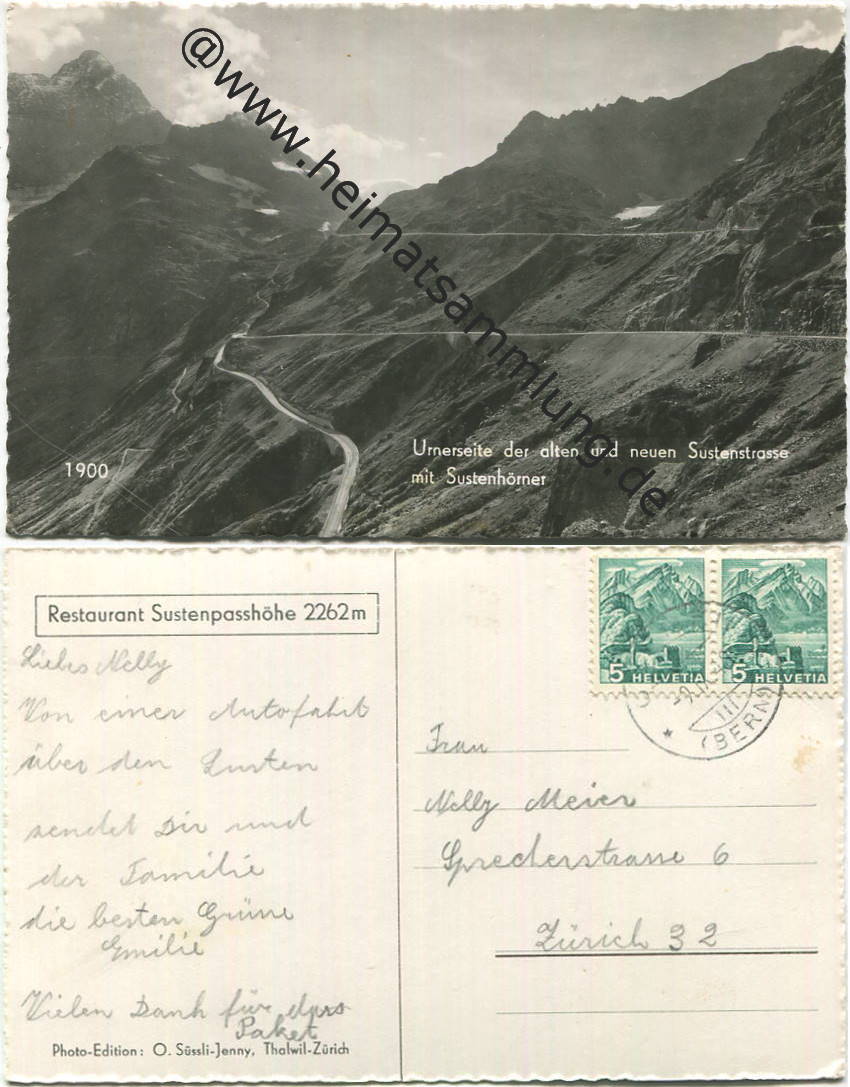 @www.heimatsammlung.de
1900
Urnerseite der alten und neuen Sustenstrasse
mit Sustenhörner
Restaurant Sustenpasshöhe 2262m
Liebes Nelly
Von einer Autofahrt
über den Susten
sendet Dir und
der Familie
die besten Grüsse
Emilie
Vielen Dank für das
Paket
Photo-Edition: O. Süssli-Jenny, Thalwil-Zürich
5 HELVETIA
5 HELVETIA
III
(BERN)
Frau
Nelly Meier
Sprecherstrasse 6
Zürich 32